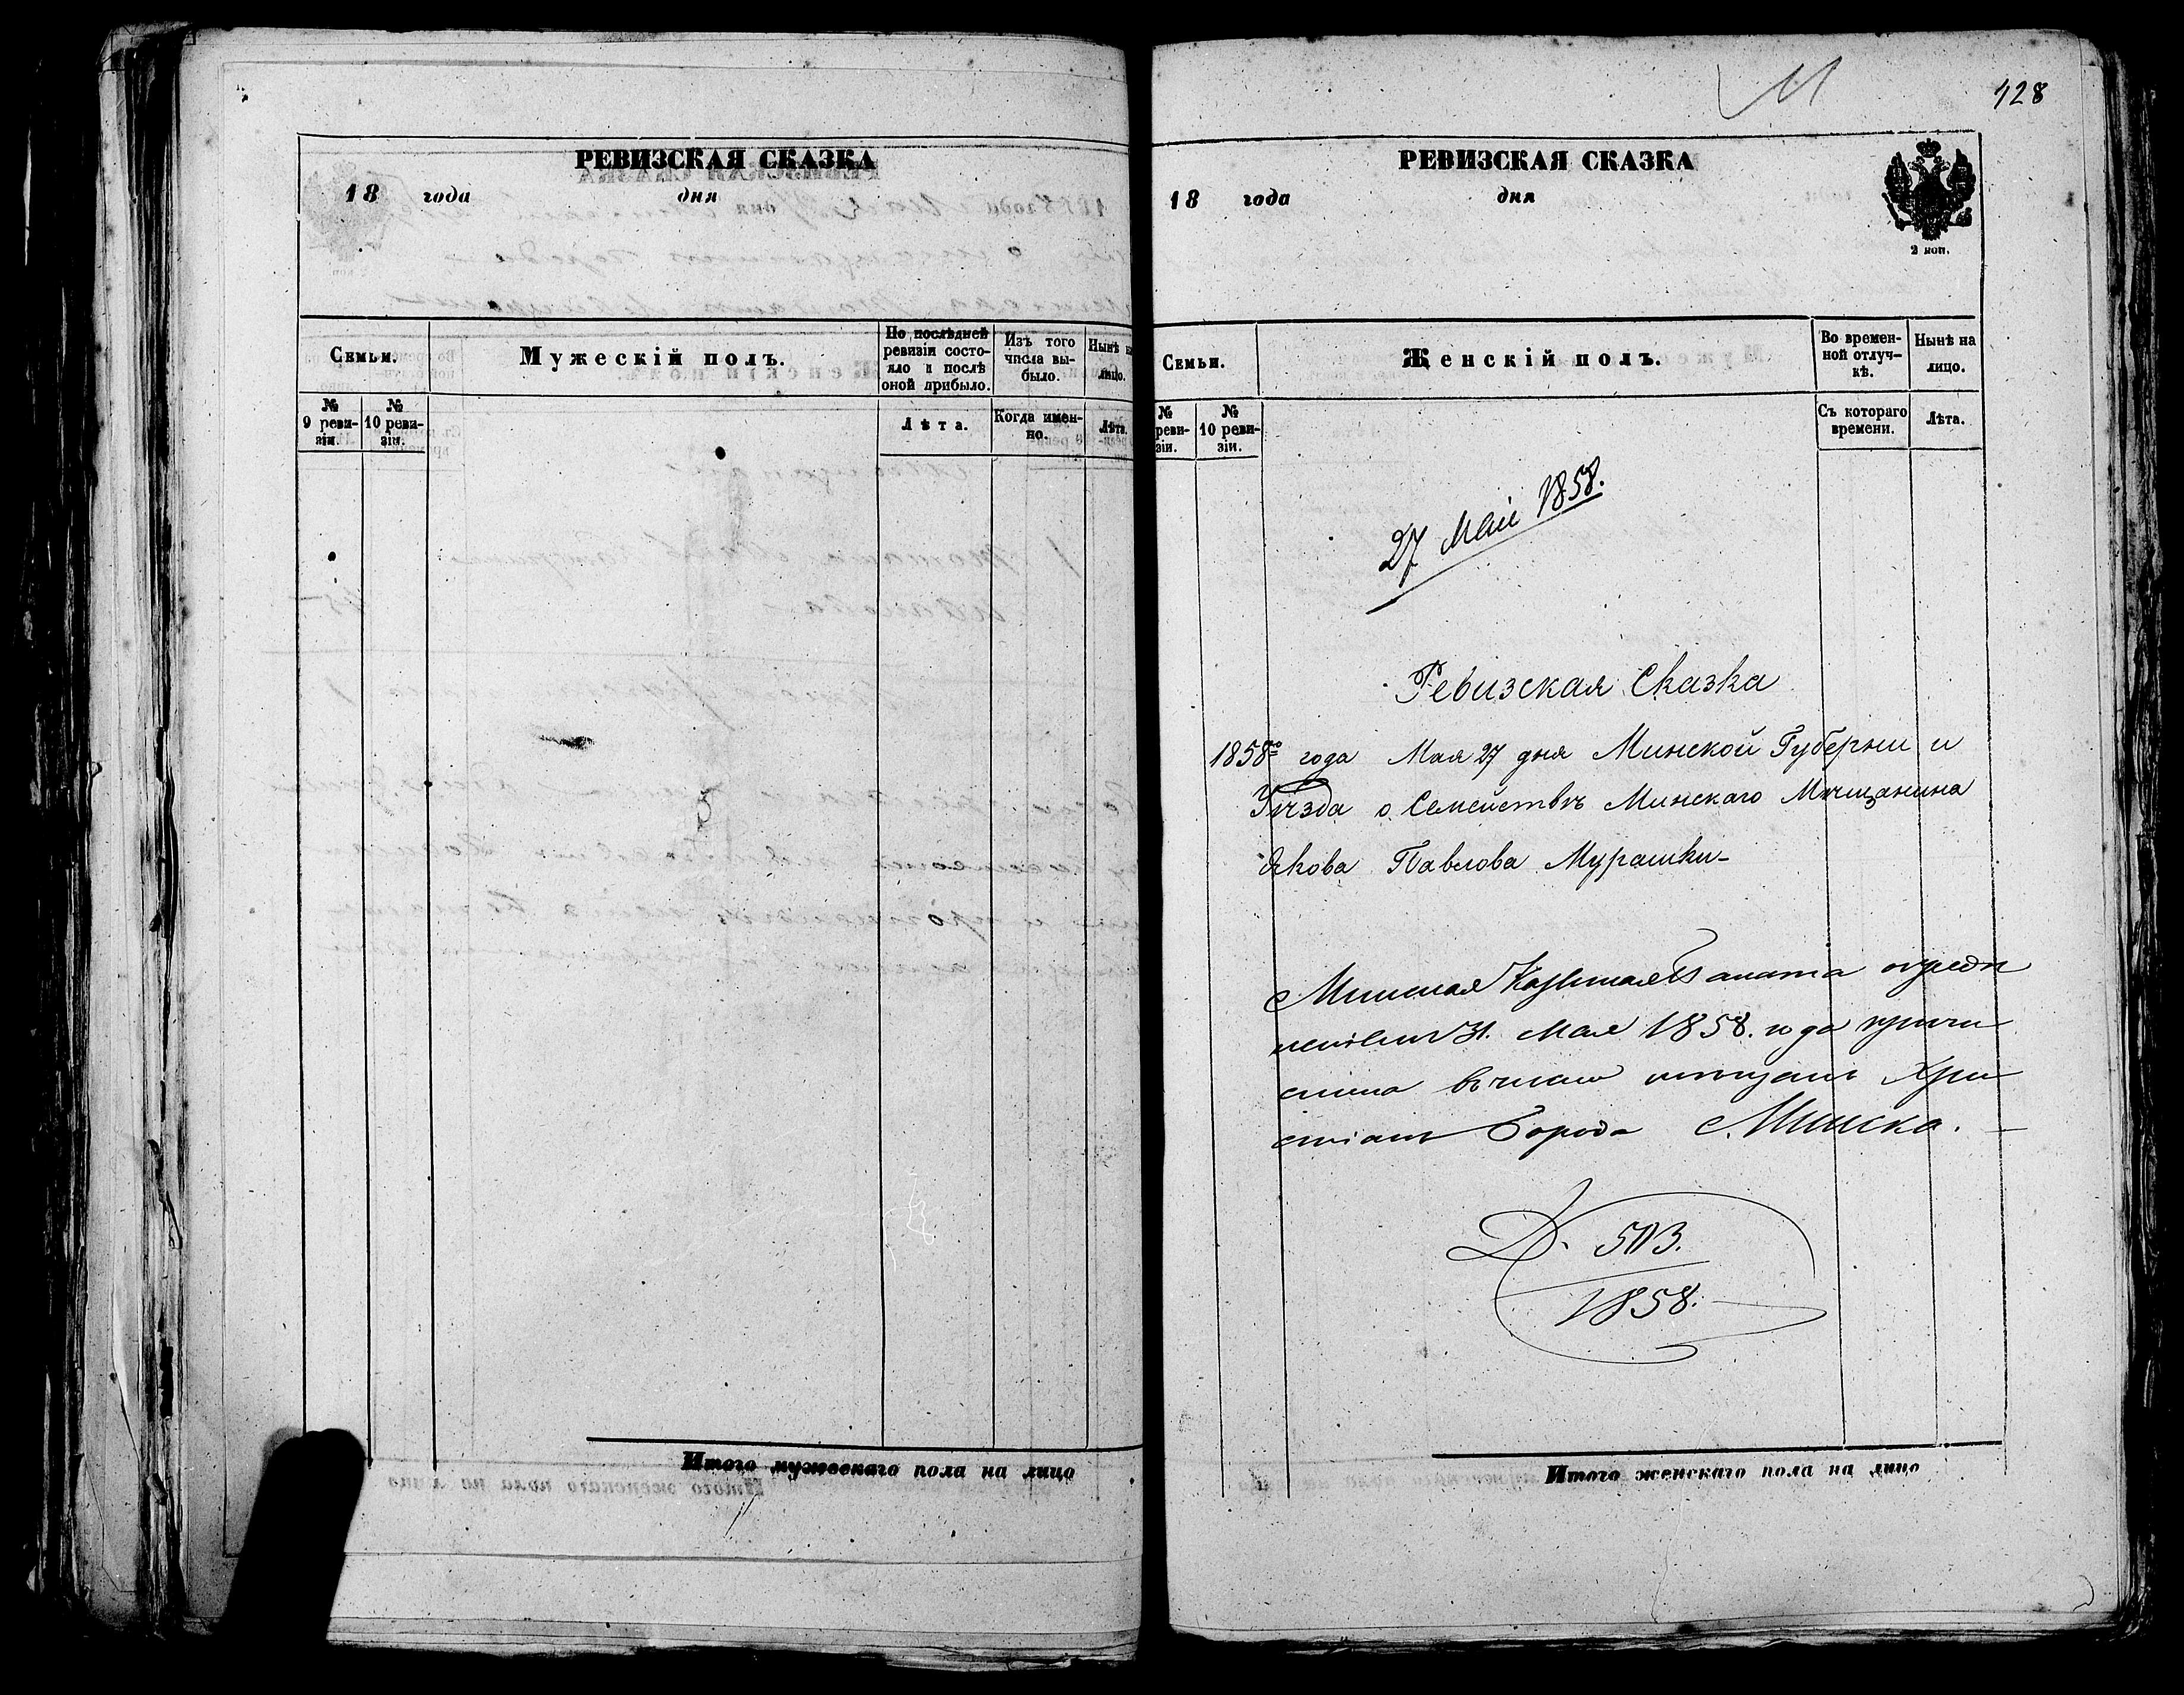 РЕВИЗСКАЯ СКАЗКА
18 года дня
Семьи.
Мужескій полъ.
По послѣдней ревизіи состояло и послѣ оной прибыло.
Изъ того числа выбыло.
Нынѣ на лицо.
№ 9 ревизіи.
№ 10 ревизіи.
Лѣта.
Когда именно.
Лѣта.
Итого мужескаго пола на лицо
128
РЕВИЗСКАЯ СКАЗКА
18 года дня
2 коп.
Семьи.
Женскій полъ.
Во временной отлучкѣ.
Нынѣ на лицо.
№ ревизіи.
№ 10 ревизіи.
Съ котораго времени.
Лѣта.
27 Маи 1858.
Ревизская Сказка
1858го года Мая 27 дня Минской Губерніи и
Уѣзда о Семействѣ Минскаго Мѣщанина
Якова Павлова Мурашки-
Минская Казенная Палата опредѣ
31. Мая 1858. года причи
слила въ число мещанъ Хри
стіанъ Города Минска. —
Д. 503.
1858.
Итого женскаго пола на лицо